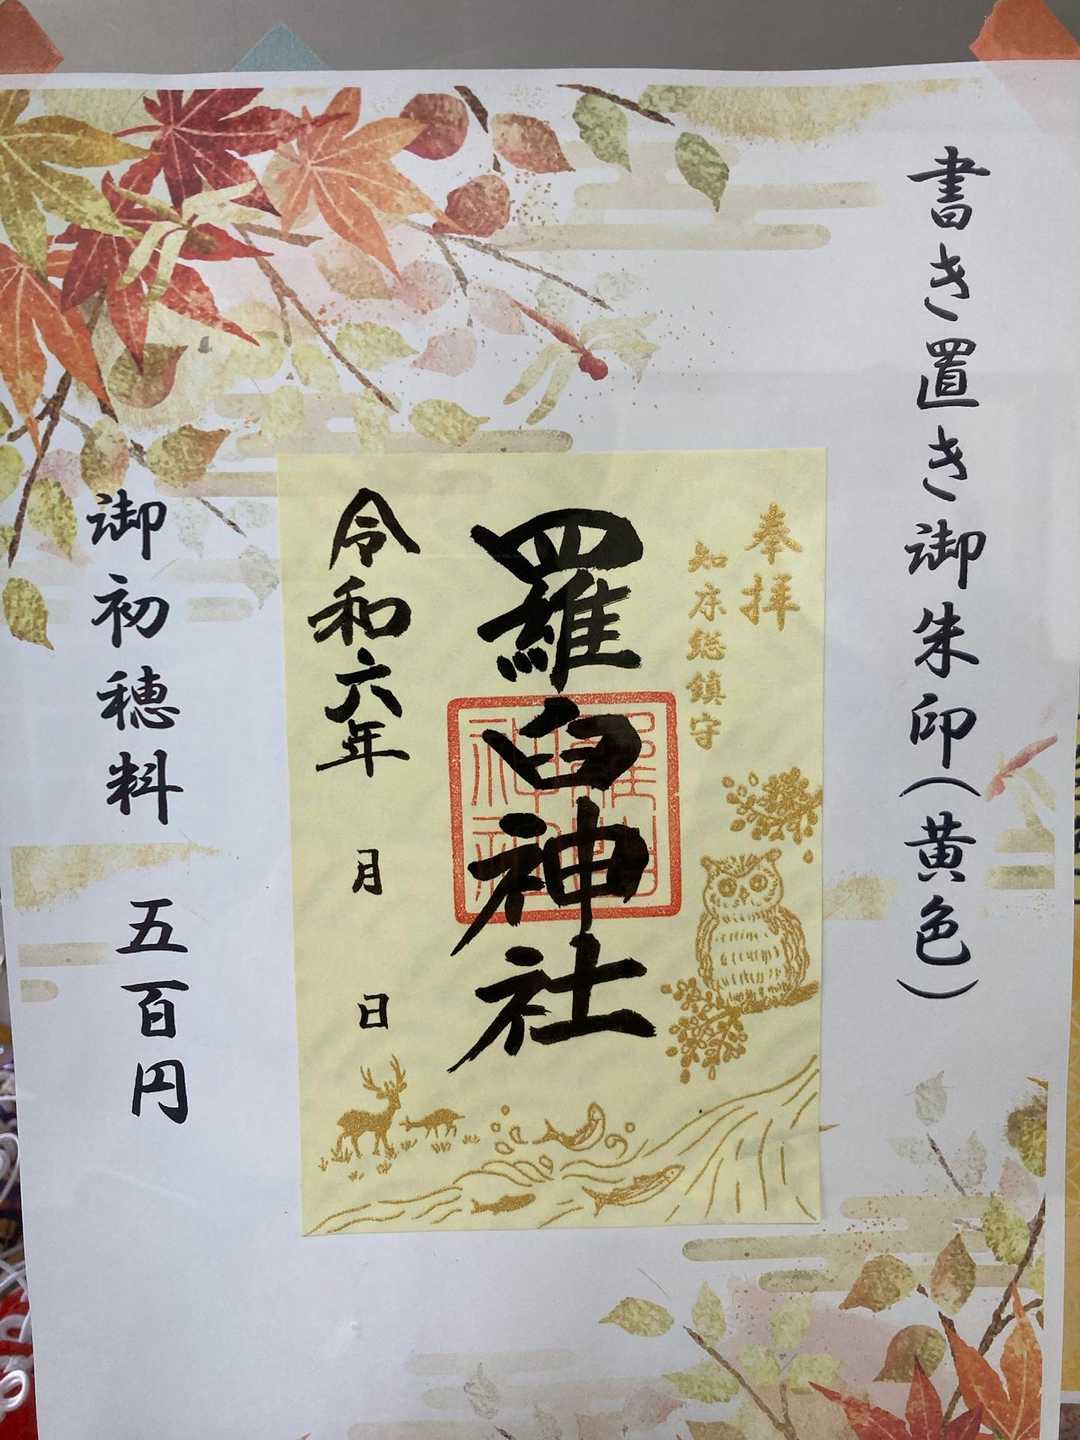 書き置き御朱印(黄色)
奉拝
知床総鎮守
羅臼神社
令和六年 月 日
御初穂料 五百円